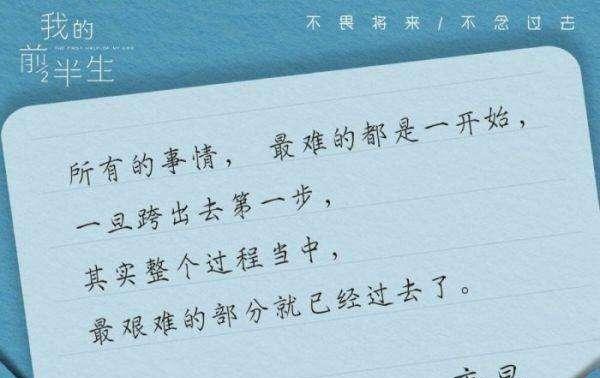 我的
前半生
THE FIRST HALF OF MY LIFE
1/2
不畏将来/不念过去
所有的事情，最难的都是一开始，
一旦跨出去第一步，
其实整个过程当中，
最艰难的部分就已经过去了。